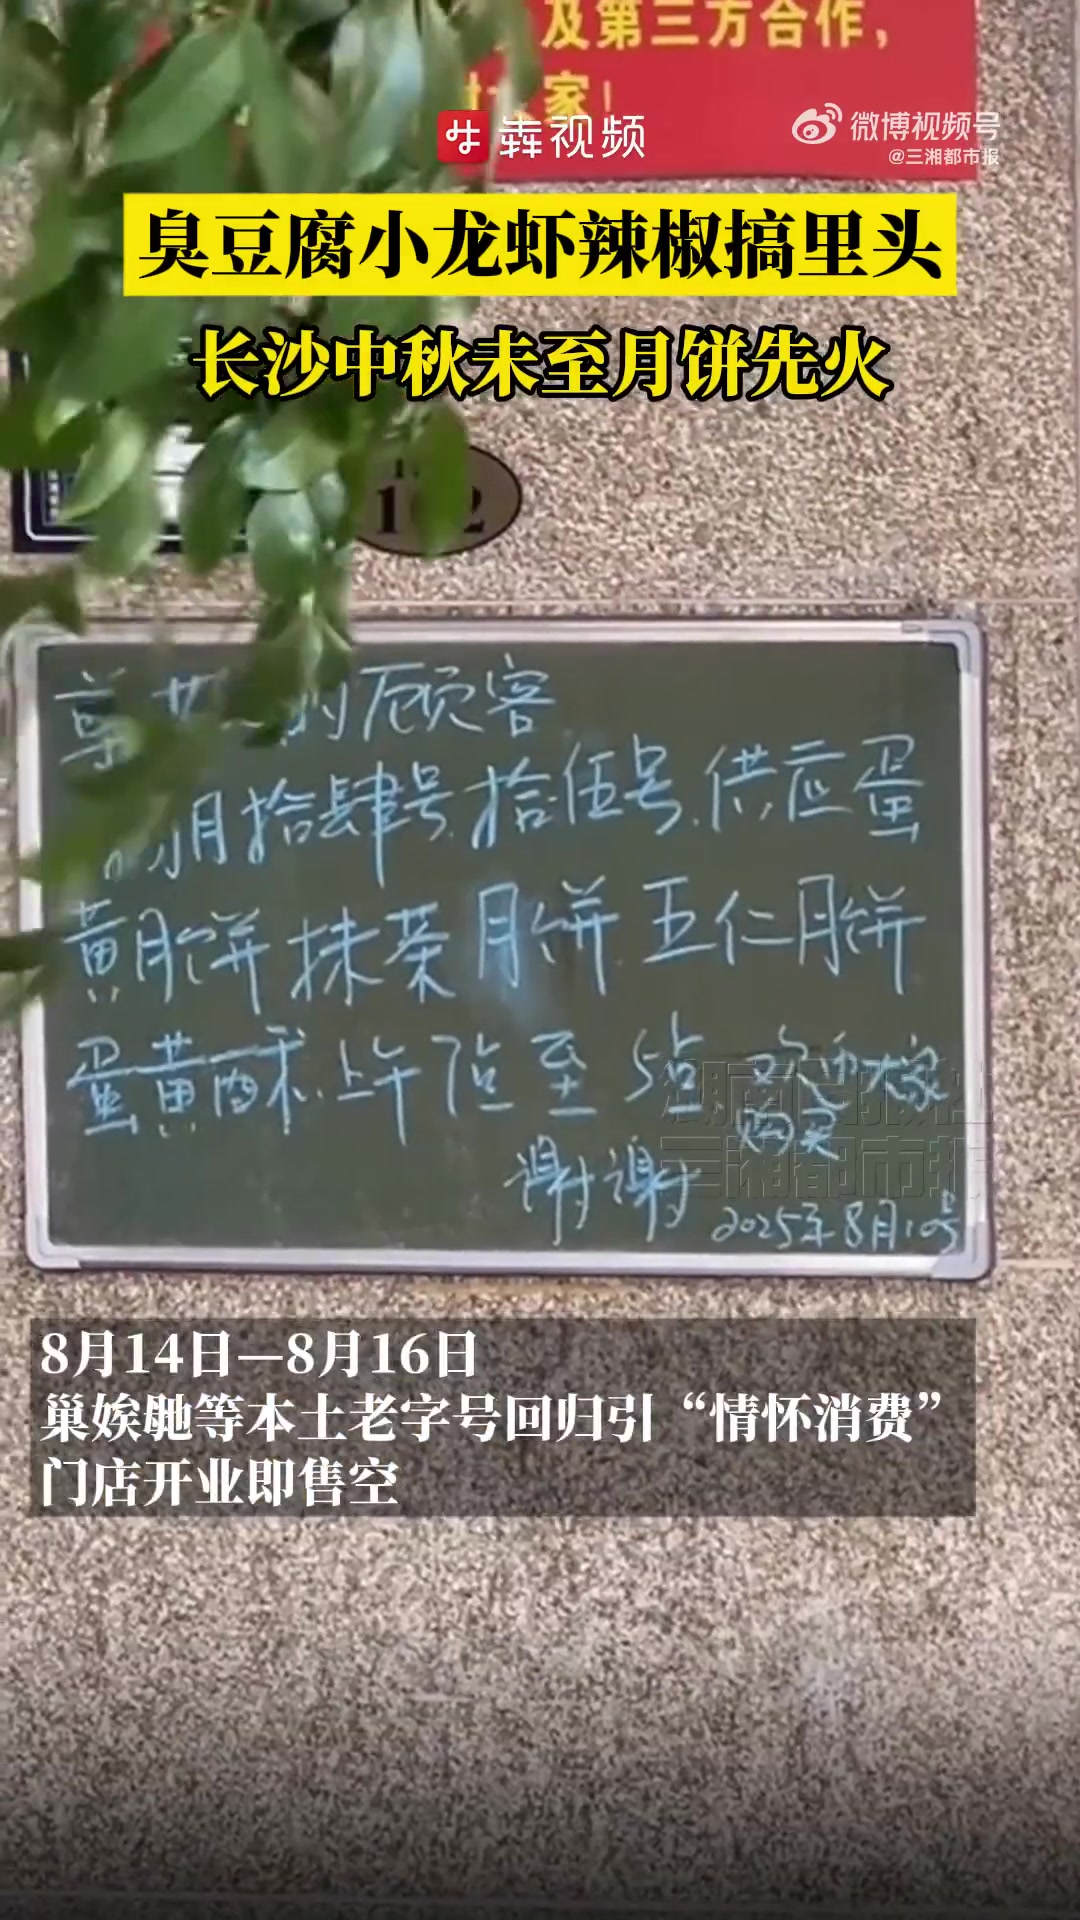 及第三方合作，
家！
犇视频
微博视频号
@三湘都市报
臭豆腐小龙虾辣椒搞里头
长沙中秋未至月饼先火
的顾客
月拾肆号.拾伍号.供应蛋
黄月饼 抹茶月饼 五仁月饼
蛋黄酥.上午7点至5点
购买
谢谢
2025年8月10号
三湘都市报
8月14日—8月16日
巢娭毑等本土老字号回归引“情怀消费”
门店开业即售空